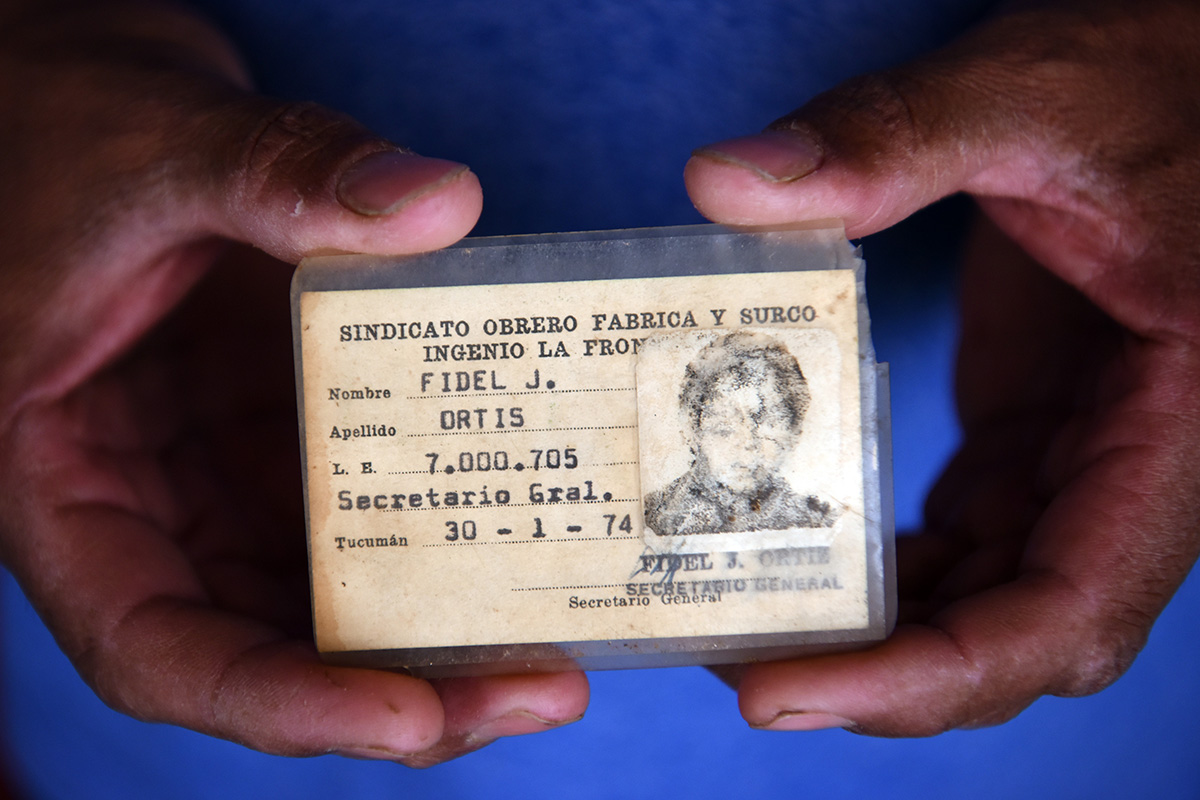 SINDICATO OBRERO FABRICA Y SURCO
INGENIO LA FRON
Nombre FIDEL J.
Apellido ORTIS
L. E. 7.000.705
Secretario Gral.
Tucumán 30 - 1 - 74
FIDEL J. ORTIZ
SECRETARIO GENERAL
Secretario General